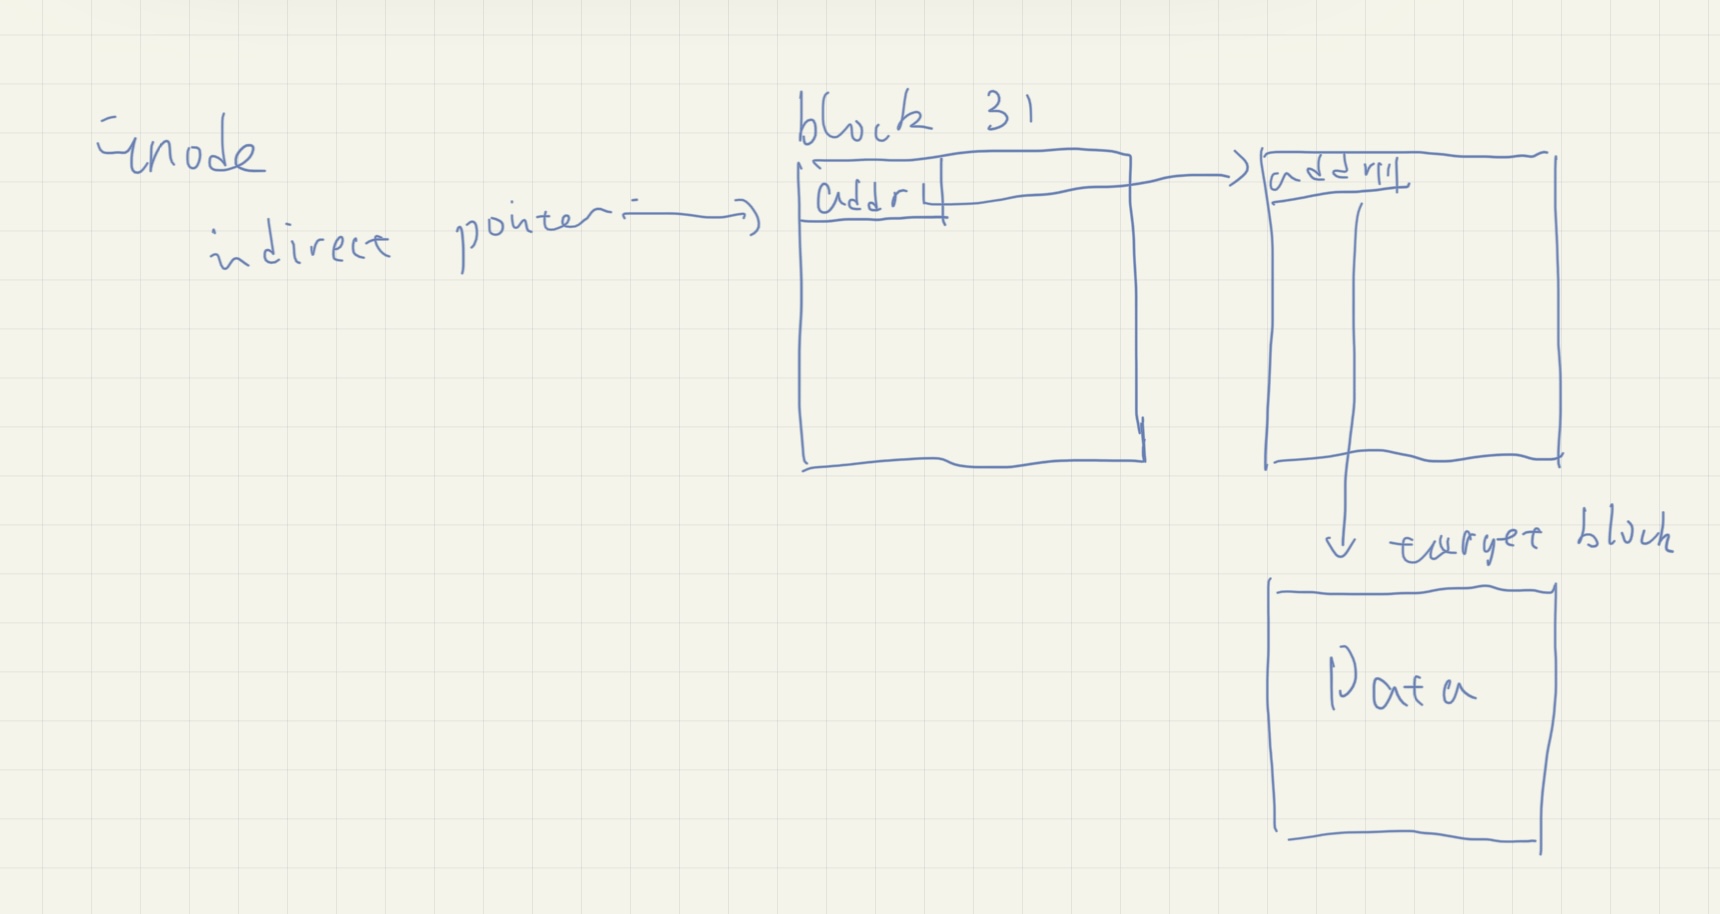 inode
indirect pointer
block 31
addr1
target block
Data